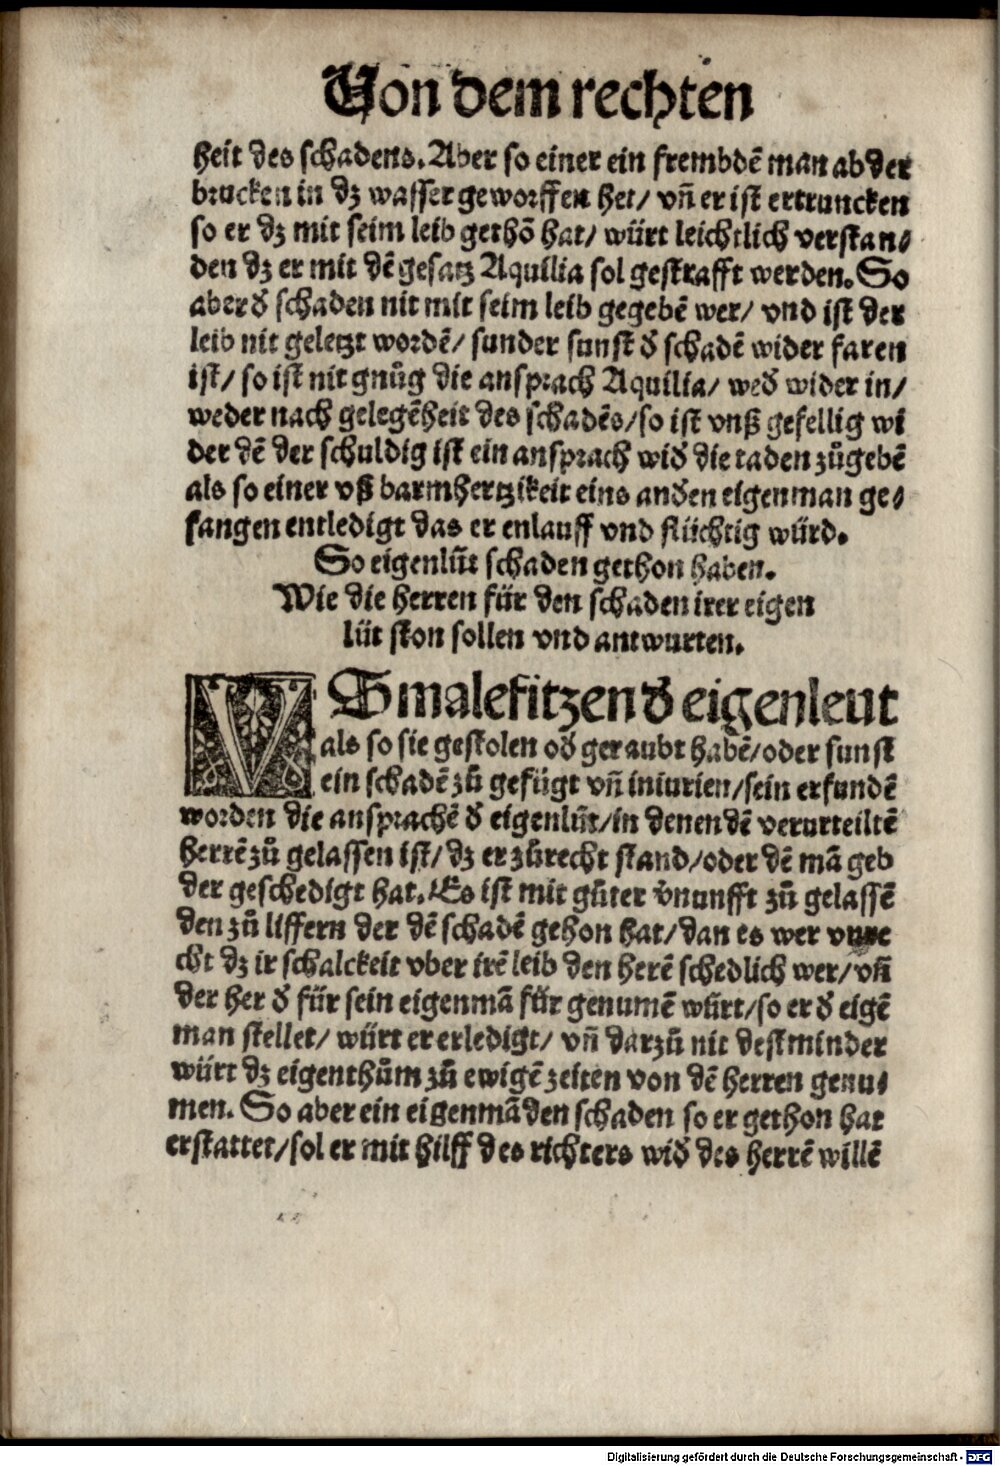 Von dem rechten
heit des schadens. Aber so einer ein frembdē man ab der
brucken in dz wasser geworffen het/ vñ er ist ertruncken
so er dz mit seim leib gethō hat/ würt leichtlich verstan⸗
den dz er mit dē gesatz Aquilia sol gestrafft werden. So
aber d̕ schaden nit mit seim leib gegebē wer/ vnd ist der
leib nit geletzt wordē/ sunder sunst d̕ schadē wider faren
ist/ so ist nit gnůg die ansprach Aquilia/ wed̕ wider in/
weder nach gelegēheit des schadēs/ so ist vnß gefellig wi
der dē der schuldig ist ein ansprach wid̕ die taden zůgebē
als so einer vß barmhertzikeit eins and̕en eigenman ge⸗
fangen entledigt das er enlauff vnd flüchtig würd.
So eigenlüt schaden gethon haben.
Wie die herren für den schaden irer eigen
lüt ston sollen vnd antwurten.
VS malefitzen d̕ eigenleut
als so sie gestolen od̕ geraubt habē/ oder sunst
ein schadē zů gefügt vñ iniurien/ sein erfundē
worden die ansprachē d̕ eigenlüt/ in denen dē verurteiltē
herrē zů gelassen ist/ dz er zůrecht stand/ oder dē mā geb
der geschedigt hat. Es ist mit gůter v̄nunfft zů gelassē
den zů liffern der dē schadē gehon hat/ dan es wer vnre
cht dz ir schalckeit vber irē leib den herē schedlich wer/ vñ
der her d̕ für sein eigenmā für genumē würt/ so er d̕ eigē
man stellet/ würt er erledigt/ vñ darzů nit destminder
würt dz eigenthům zů ewigē zeiten von dē herren genu⸗
men. So aber ein eigenmā den schaden so er gethon hat
erstattet/ sol er mit hilff des richters wid̕ des herrē willē
Digitalisierung gefördert durch die Deutsche Forschungsgemeinschaft - DFG